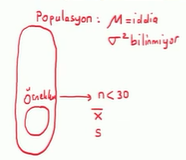 Populasyon : M=iddia
σ² bilinmiyor
Örneklem → n<30
x̄
s